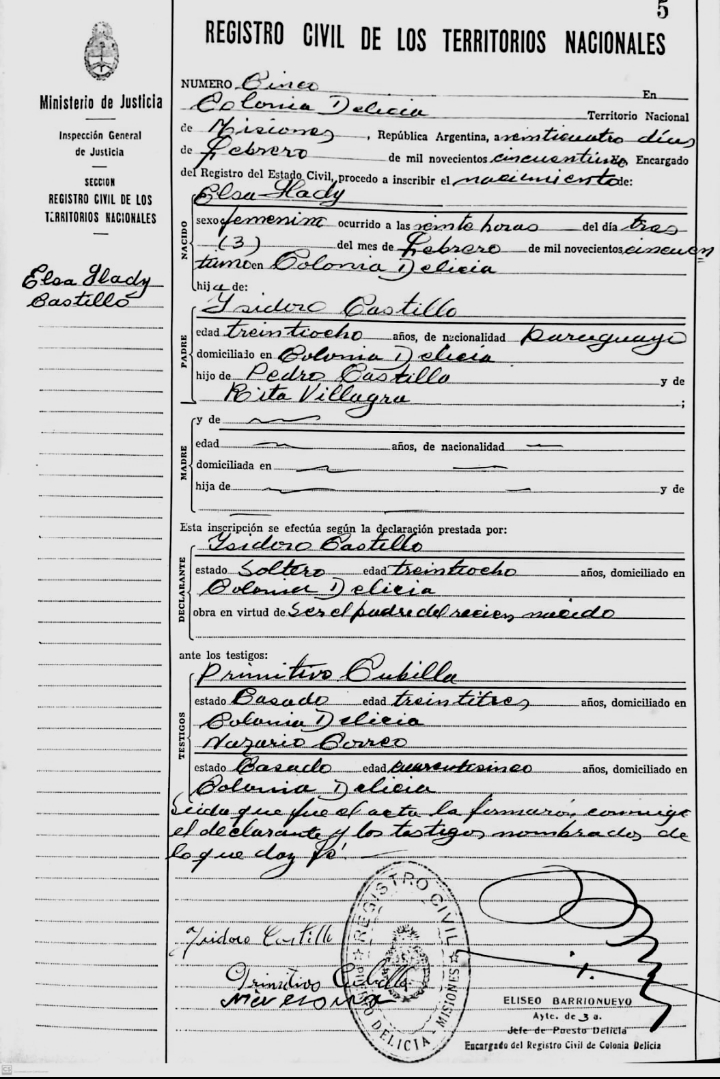 5
REGISTRO CIVIL DE LOS TERRITORIOS NACIONALES
Ministerio de Justicia
Inspección General
de Justicia
SECCION
REGISTRO CIVIL DE LOS
TERRITORIOS NACIONALES
Elsa Glady
Castillo
NUMERO Cinco En
Colonia Delicia Territorio Nacional
de Misiones, República Argentina, a veinticuatro días
de Febrero de mil novecientos cincuentiuno Encargado
del Registro del Estado Civil, procedo a inscribir el nacimiento de:
NACIDO
Elsa Glady
sexo femenina ocurrido a las veinte horas del día tres
(3) del mes de Febrero de mil novecientos cincuen
tiuno en Colonia Delicia
hija de:
PADRE
Ysidoro Castillo
edad treintiocho años, de nacionalidad paraguayo
domiciliado en Colonia Delicia
hijo de Pedro Castillo y de
Rita Villagra ;
MADRE
y de
edad años, de nacionalidad
domiciliada en
hija de y de
Esta inscripción se efectúa según la declaración prestada por:
DECLARANTE
Ysidoro Castillo
estado Soltero edad treintiocho años, domiciliado en
Colonia Delicia
obra en virtud de Ser el padre del recien nacido
ante los testigos:
TESTIGOS
Primitivo Cubilla
estado Casado edad treintitres años, domiciliado en
Colonia Delicia
Nazario Correo
estado Casado edad, años, domiciliado en
Colonia Delicia
Leida que fue el acta la firmaron, conmigo
el declarante y los testigos nombrados de
lo que doy fé.
Ysidoro Castillo
Primitivo Cubilla
REGISTRO CIVIL
DELICIA - MISIONES
ELISEO BARRIONUEVO
Ayte. de 3a.
Jefe de Puesto Delicia
Encargado del Registro Civil de Colonia Delicia